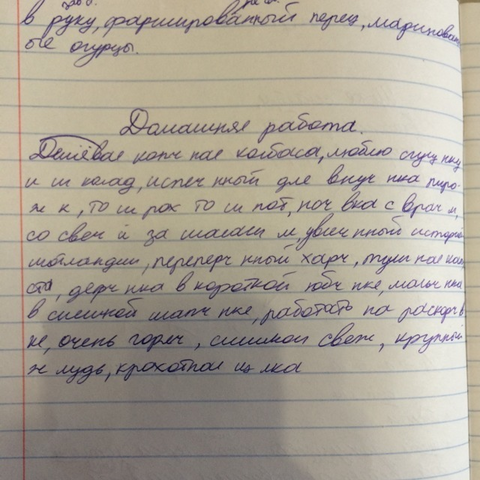 в руку, фаршированный перец, маринованн
ые огурцы.
Домашняя работа.
Дешёвая копч ная колбаса, люблю сгущ нку
и ш колад, испеч нный для внуч нка пиро-
ж к, то ш рох то ш пот, ноч вка с врач м,
со свеч й за шалаш м, увлеч нный историей
шотландии, переперч нный харч, туш ная капу
ста, девч нка в короткой юбч нке, мальч нка
в смешной шапч нке, работать на раскорч в
ке, очень горяч , слишком свеж , крупный
ж лудь, крохотная щ лка